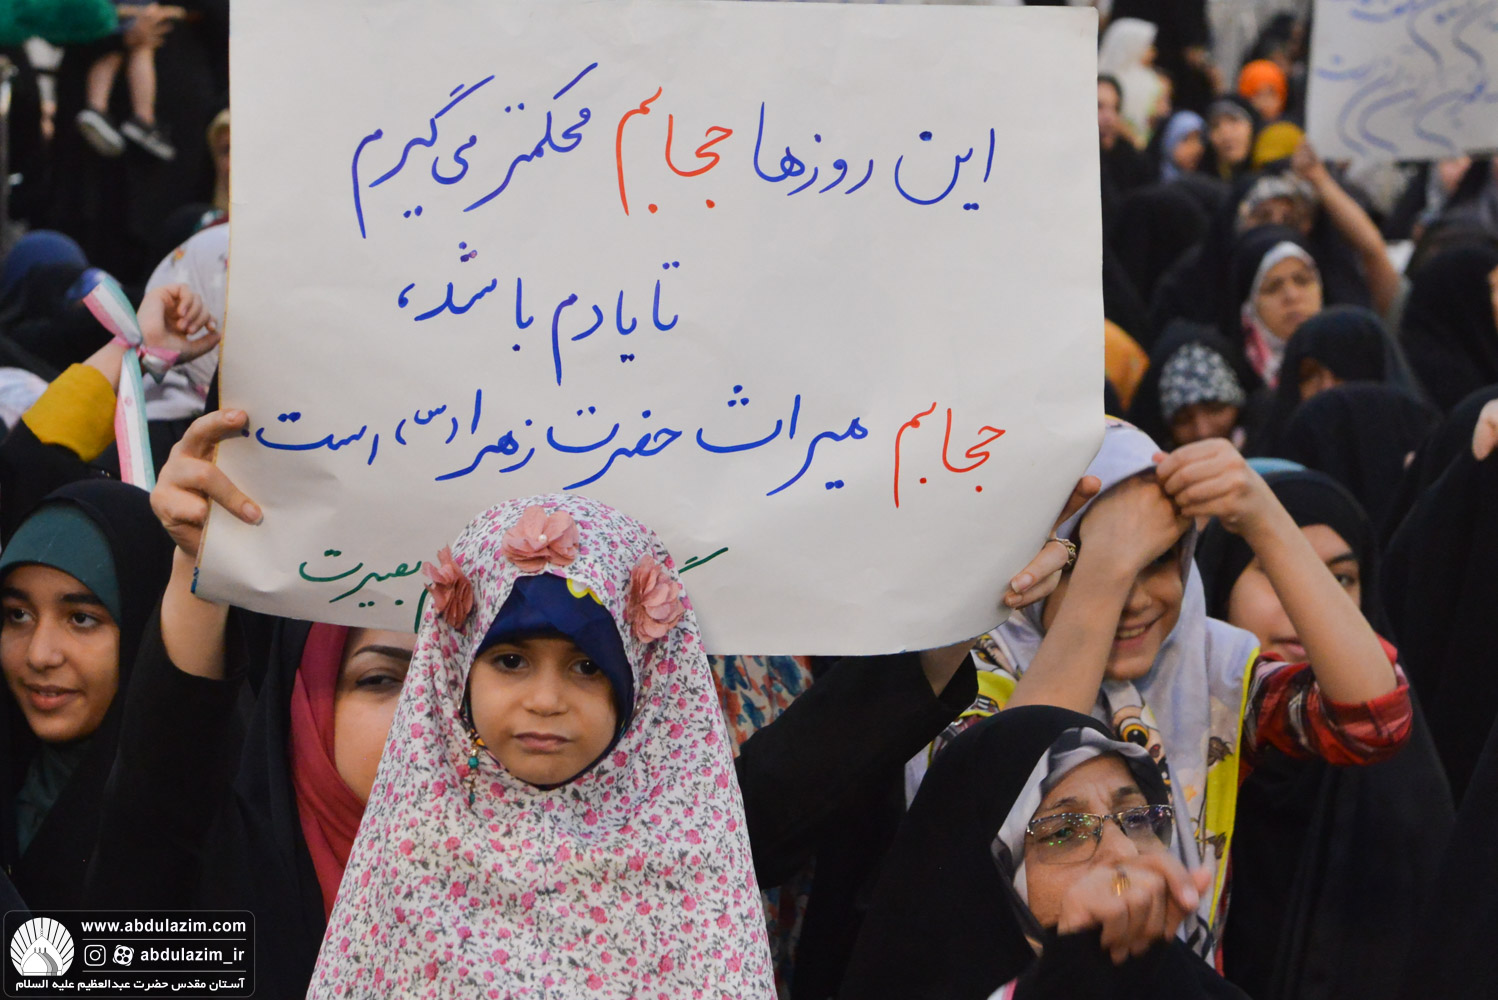 این روزها حجابم محکمتر می‌گیرم
تا یادم باشد،
حجابم میراث حضرت زهرا(س)، است.
بصیرت
www.abdulazim.com
abdulazim_ir
آستان مقدس حضرت عبدالعظیم علیه السلام